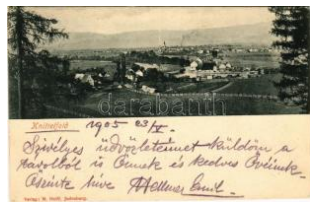 Knittelfeld
1905 23/V.
Szivélyes üdvözletemet küldöm a
távolból is Önnek és kedves Övéinek
Őszinte híve Hellmer Emil.
Verlag: W. Judenburg.